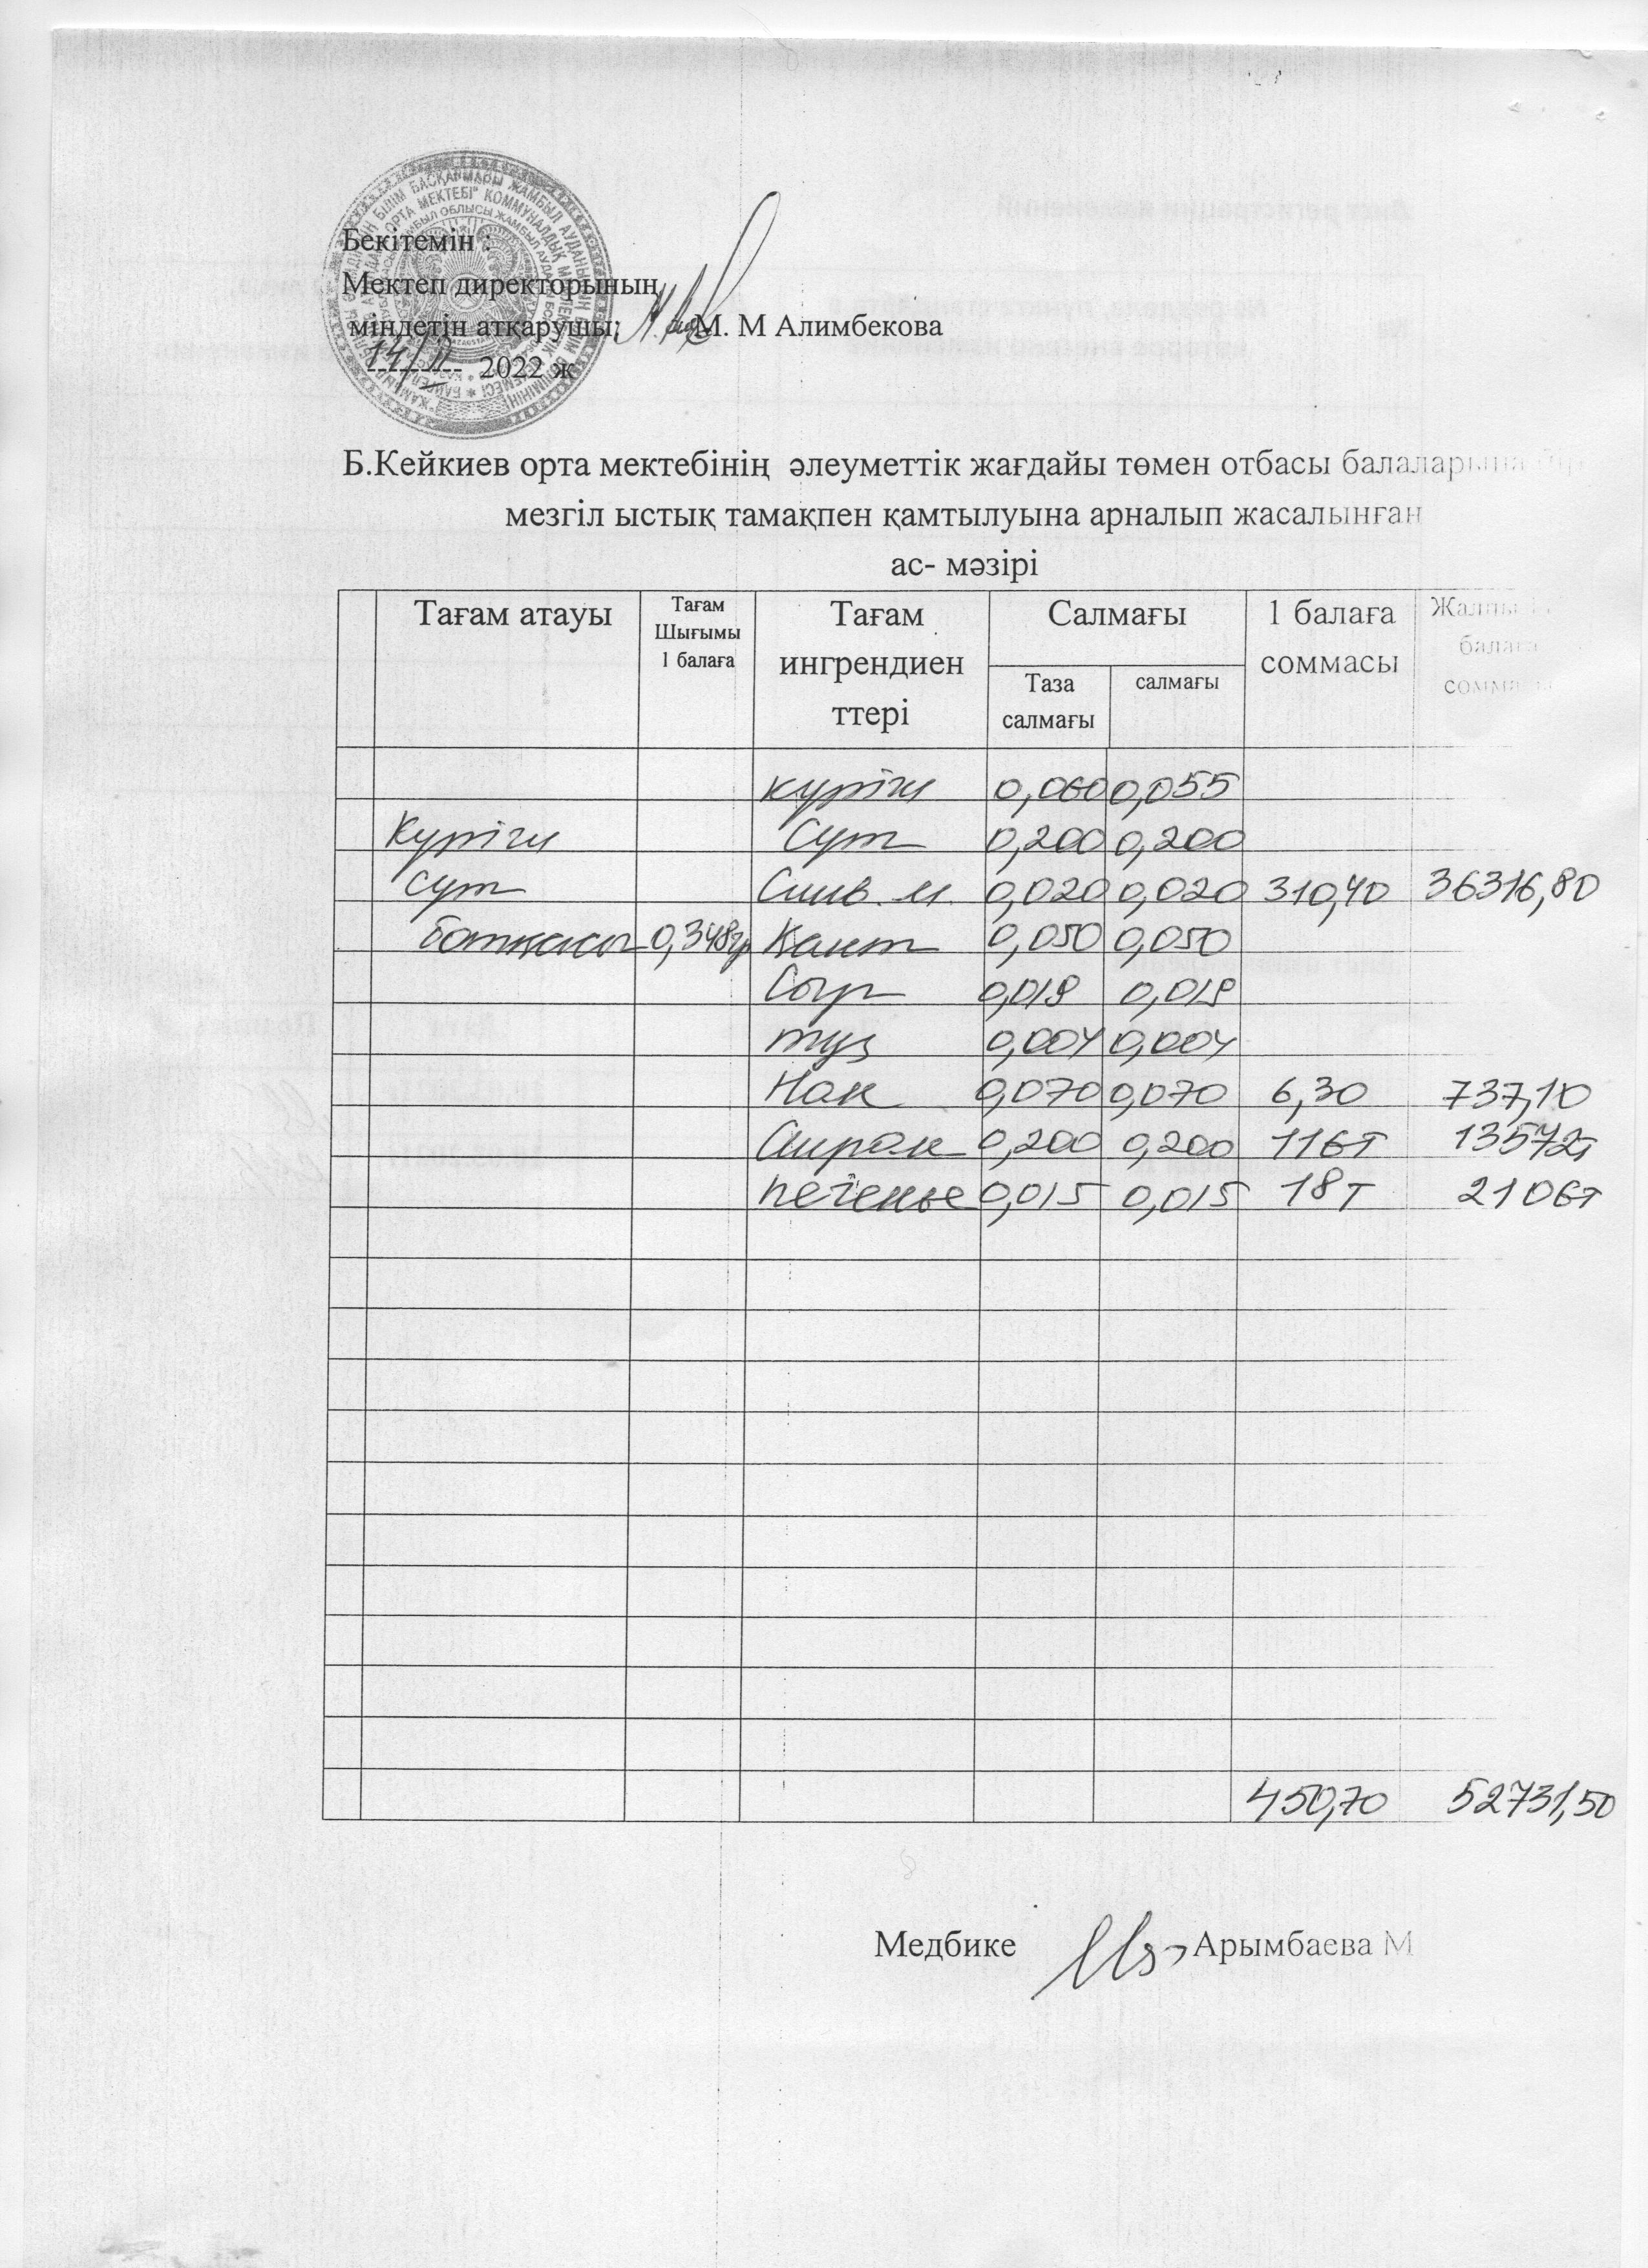 Бекітемін :
Мектеп директорының
міндетін атқарушы: М. М Алимбекова
14/11 2022 ж
Б.Кейкиев орта мектебінің әлеуметтік жағдайы төмен отбасы балаларына бір
мезгіл ыстық тамақпен қамтылуына арналып жасалынған
ас- мәзірі
Тағам атауы Тағам Шығымы 1 балаға Тағам ингрендиен ттері Салмағы 1 балаға соммасы Жалпы балаға
Таза салмағы салмағы
күріш 0,060 0,055
Күріш Сүт 0,200 0,200
сүт Слив. м. 0,020 0,020 310,40 36316,80
ботқасы 0,348гр Кант 0,050 0,050
Сыр 0,019 0,019
тұз 0,004 0,004
Нан 0,070 0,070 6,30 737,10
Айран 0,200 0,200 116т 13572т
печенье 0,015 0,015 18т 2106т
450,70 52731,50
Медбике Арымбаева М